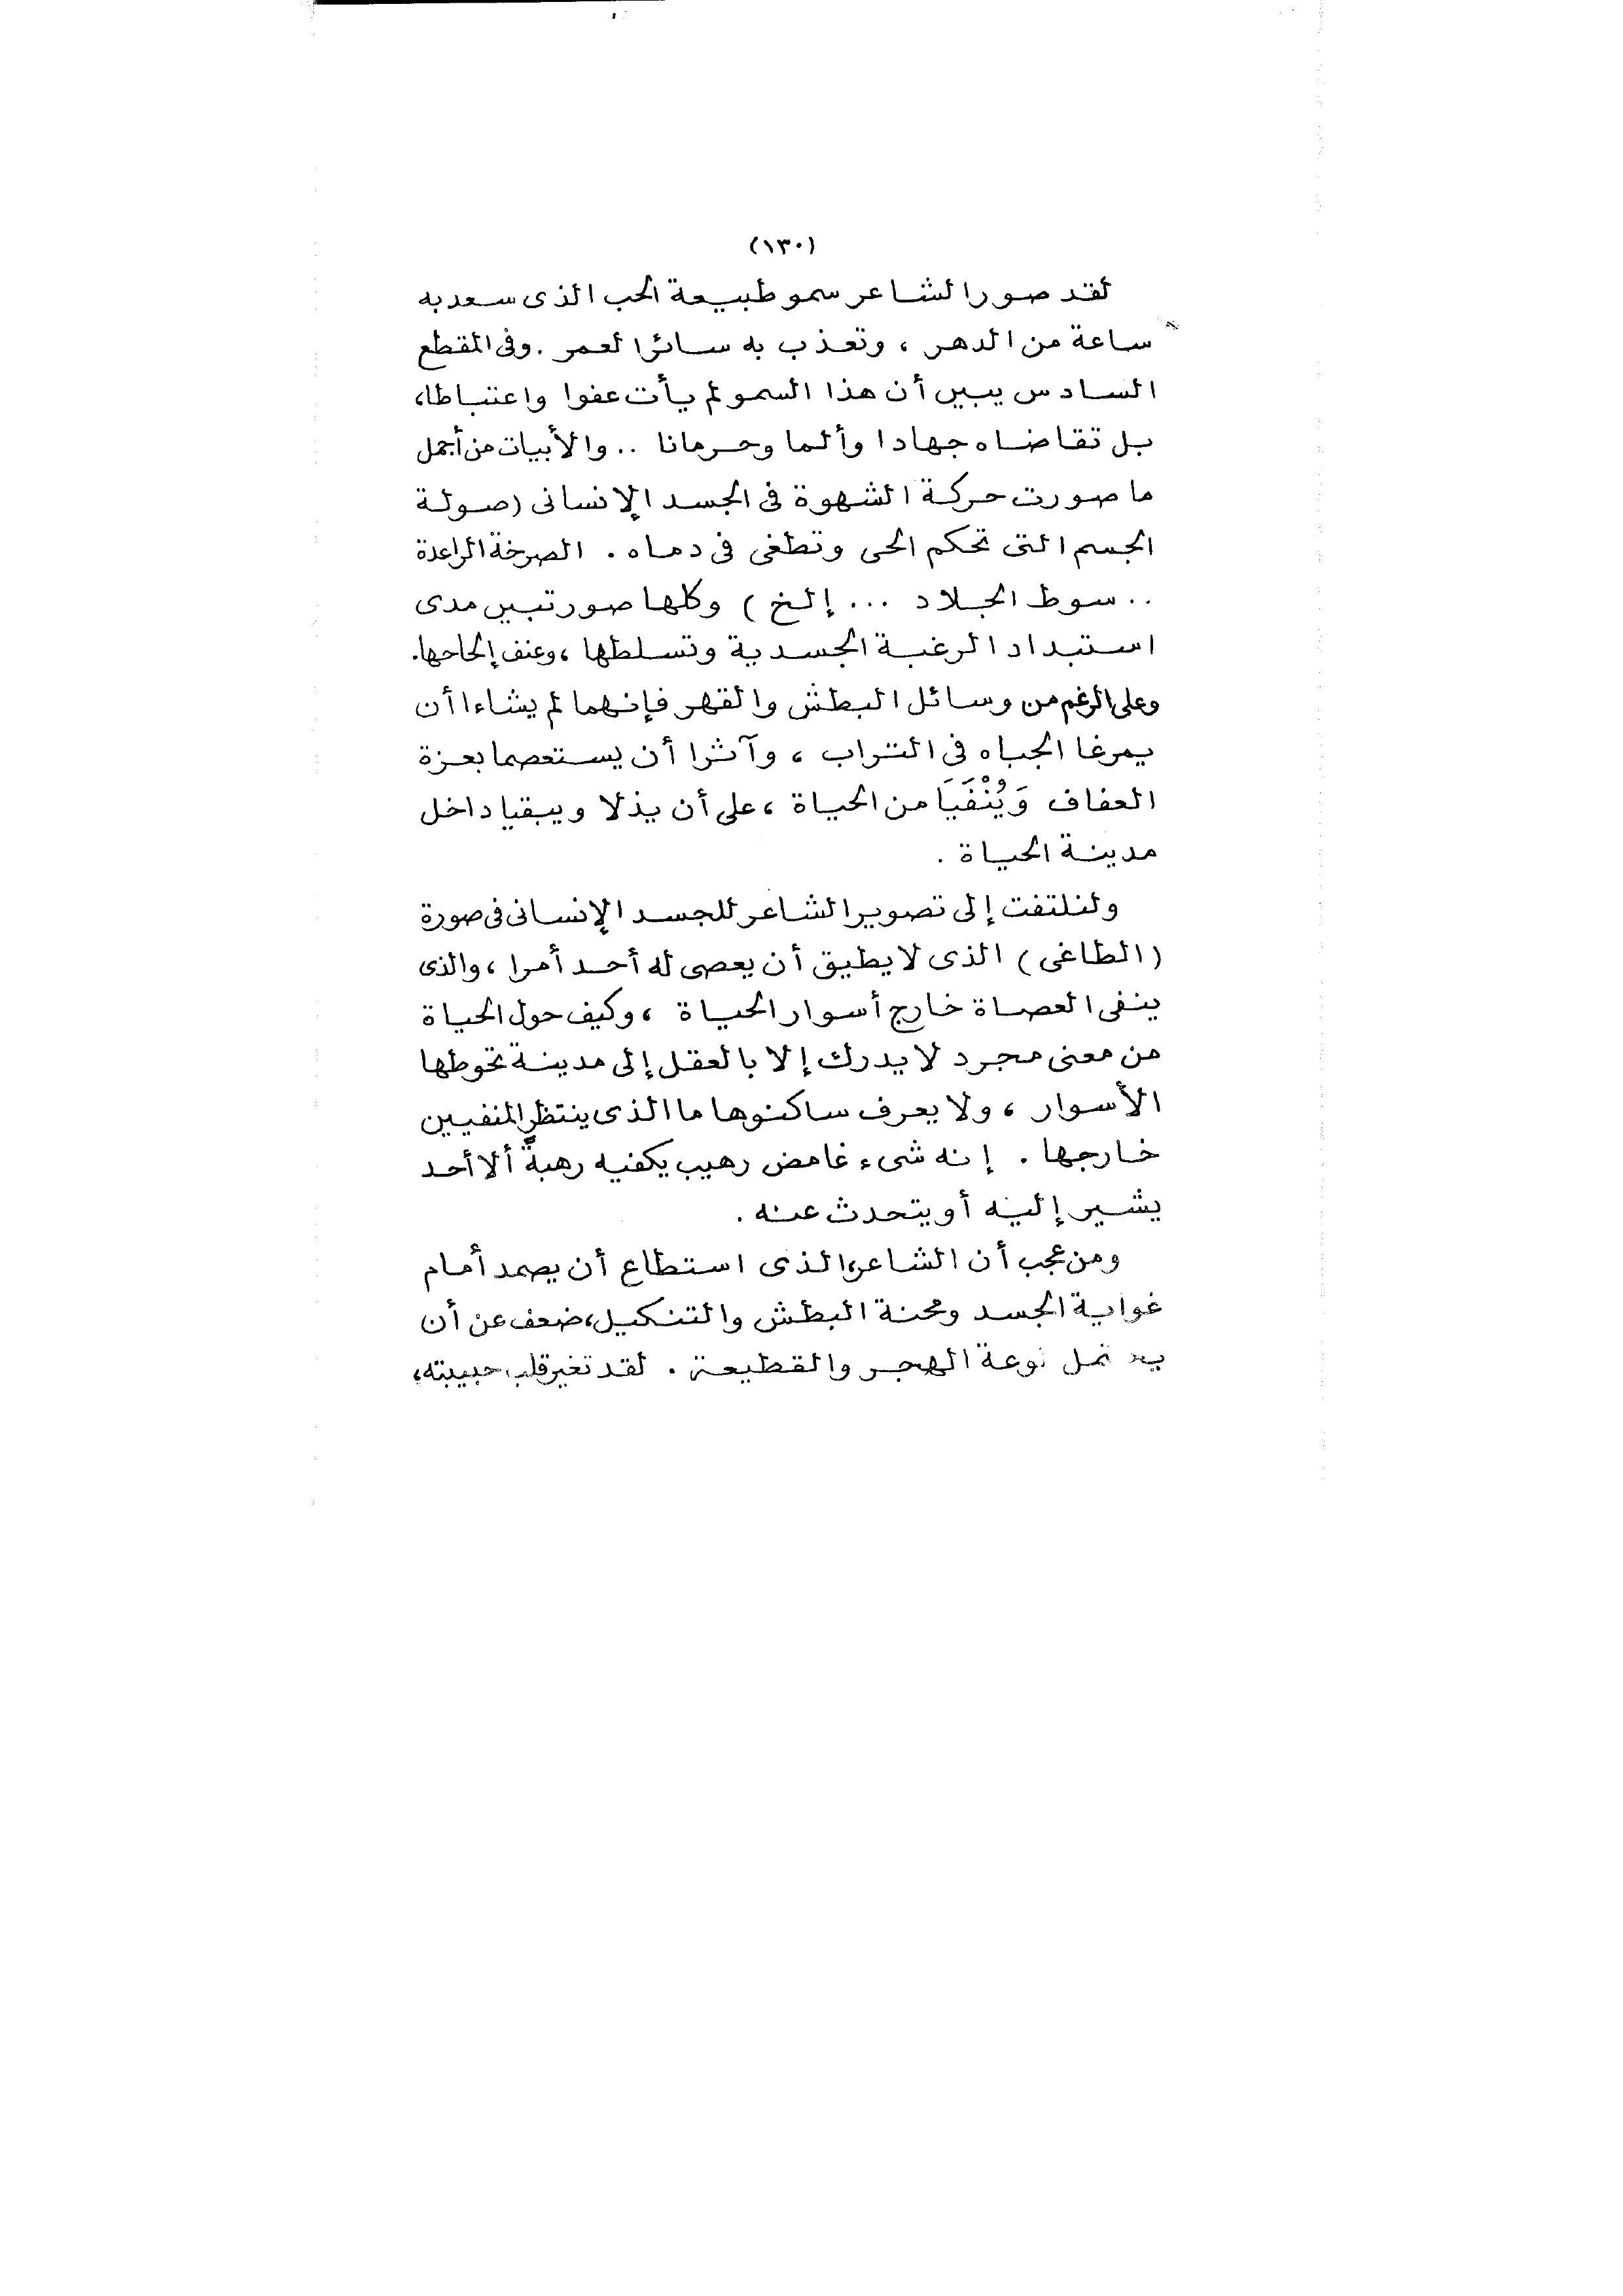 (١٣٠)
لقد صور الشاعر سمو طبيعة الحب الذى سعد به
ساعة من الدهر ، وتعذب به سائر العمر . وفى المقطع
السادس يبين أن هذا السمو لم يأت عفوا واعتباطا،
بل تقاضاه جهادا وألما وحرمانا .. والأبيات من أجمل
ما صورت حركة الشهوة فى الجسد الإنسانى (صولة
الجسم التى تحكم الحى وتطغى فى دماه . الصرخة الراعدة
.. سوط الجلاد ... إلخ ) وكلها صور تبين مدى
استبداد الرغبة الجسدية وتسلطها ، وعنف إلحاحها.
وعلى الرغم من وسائل البطش والقهر فإنهما لم يشاءا أن
يمرغا الجباه فى التراب ، وآثرا أن يستعصما بعزة
العفاف وَيُنْفَيَا من الحياة ، على أن يذلا ويبقيا داخل
مدينة الحياة .
ولنلتفت إلى تصوير الشاعر للجسد الإنسانى فى صورة
(الطاغى) الذى لا يطيق أن يعصى له أحد أمرا ، والذى
ينفى العصاة خارج أسوار الحياة ، وكيف حول الحياة
من معنى مجرد لا يدرك إلا بالعقل إلى مدينة تحوطها
الأسوار ، ولا يعرف ساكنوها ما الذى ينتظر المنفيين
خارجها . إنه شىء غامض رهيب يكفيه رهبةً ألا أحد
يشير إليه أو يتحدث عنه .
ومن عجب أن الشاعر، الذى استطاع أن يصمد أمام
غواية الجسد ومحنة البطش والتنكيل، ضعف عن أن
لوعة الهجر والقطيعة . لقد تغير قلب حبيبته،